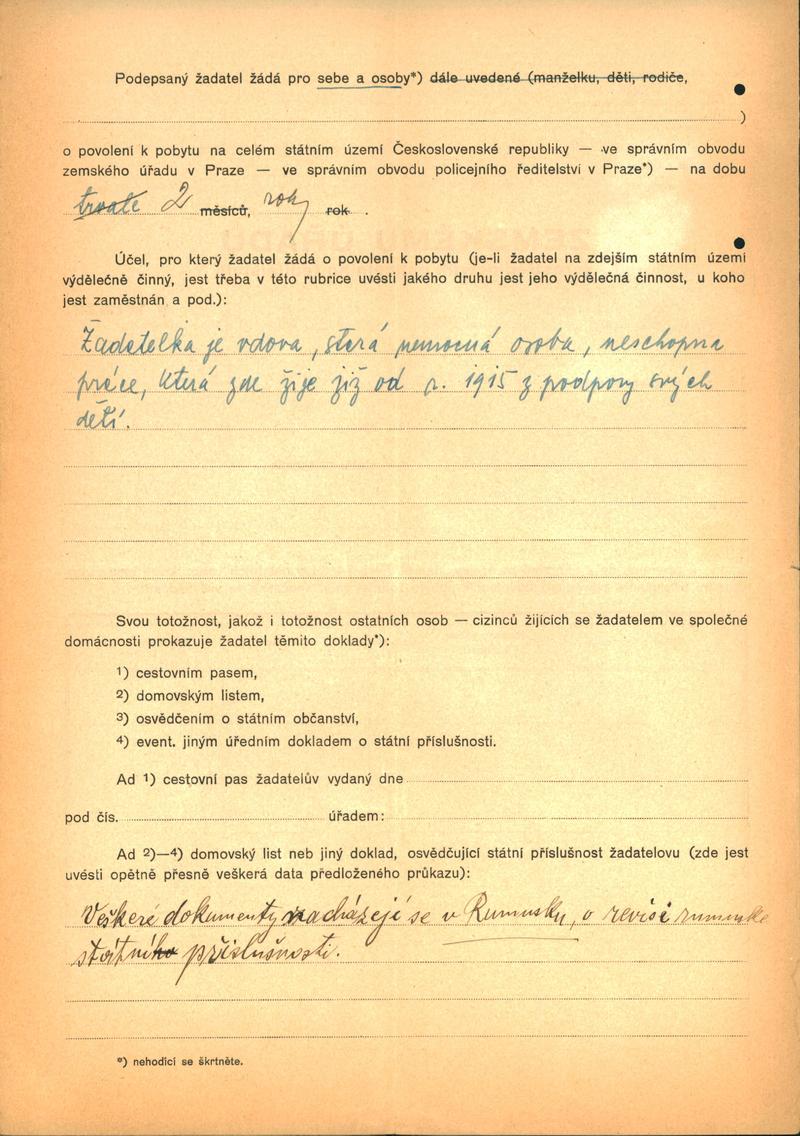 Podepsaný žadatel žádá pro sebe a osoby*) dále uvedené (manželku, děti, rodiče,
)
o povolení k pobytu na celém státním území Československé republiky — ve správním obvodu
zemského úřadu v Praze — ve správním obvodu policejního ředitelství v Praze*) — na dobu
trvale 2 měsíců, roky rok .
Účel, pro který žadatel žádá o povolení k pobytu (je-li žadatel na zdejším státním území
výdělečně činný, jest třeba v této rubrice uvésti jakého druhu jest jeho výdělečná činnost, u koho
jest zaměstnán a pod.):
Žadatelka je vdova, stará nemocná osoba, neschopna
práce, která zde žije již od r. 1915 z podpory svých
dětí.
Svou totožnost, jakož i totožnost ostatních osob — cizinců žijících se žadatelem ve společné
domácnosti prokazuje žadatel těmito doklady*):
1) cestovním pasem,
2) domovským listem,
3) osvědčením o státním občanství,
4) event. jiným úředním dokladem o státní příslušnosti.
Ad 1) cestovní pas žadatelův vydaný dne
pod čís. úřadem:
Ad 2)—4) domovský list neb jiný doklad, osvědčující státní příslušnost žadatelovu (zde jest
uvésti opětně přesně veškerá data předloženého průkazu):
Veškeré dokumenty nacházejí se v Rumunsku, o revisi rumunske
státního příslušnosti.
*) nehodící se škrtněte.